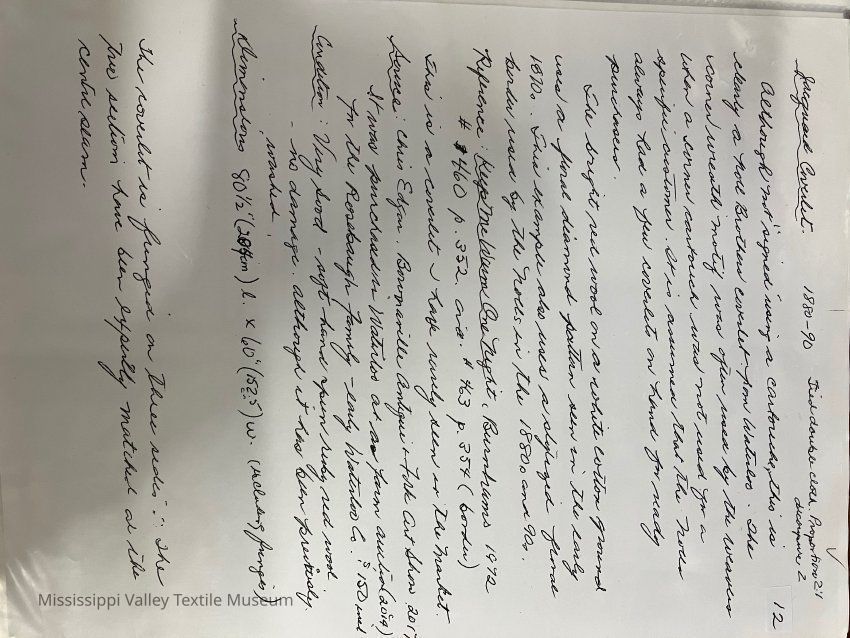 12
Jacquard Coverlet. 1880-90 Tied double cloth. Proportion 2:1
decoupure 2
Although not "signed" using a cartouche, this is
clearly a Noll Brothers coverlet from Waterloo. The
corner wreath motif was often used by the weavers
when a corner cartouche was not used for a
specific customer. It is assumed that the Nolls
always had a few coverlets on hand for ready
purchasers.
The bright red wool on a white cotton ground
uses a floral diamond pattern seen in the early
1870s. This example also uses a stylized floral
border used by the Nolls in the 1880s and 90s.
Reference: Keep Me Warm One Night, Burnhams 1972
# 460 p. 352. and # 463 p. 354 (border)
This is a coverlet I have rarely seen in the market.
Source: Chris Edgar. Bowmanville Antique & Folk Art Show 2017
It was purchased in Waterloo at a farm auction (2014)
for the Rosebaugh family - early Waterloo Co. $150
Condition: Very Good - soft hand spun ruby red wool
- no damage. although it has been previously
washed.
Dimensions 80½" (204cm) l. x 60" (152.5) w. (including fringes)
The coverlet is fringed on three sides. The
two sections have been expertly matched at the
centre seam.
Mississippi Valley Textile Museum